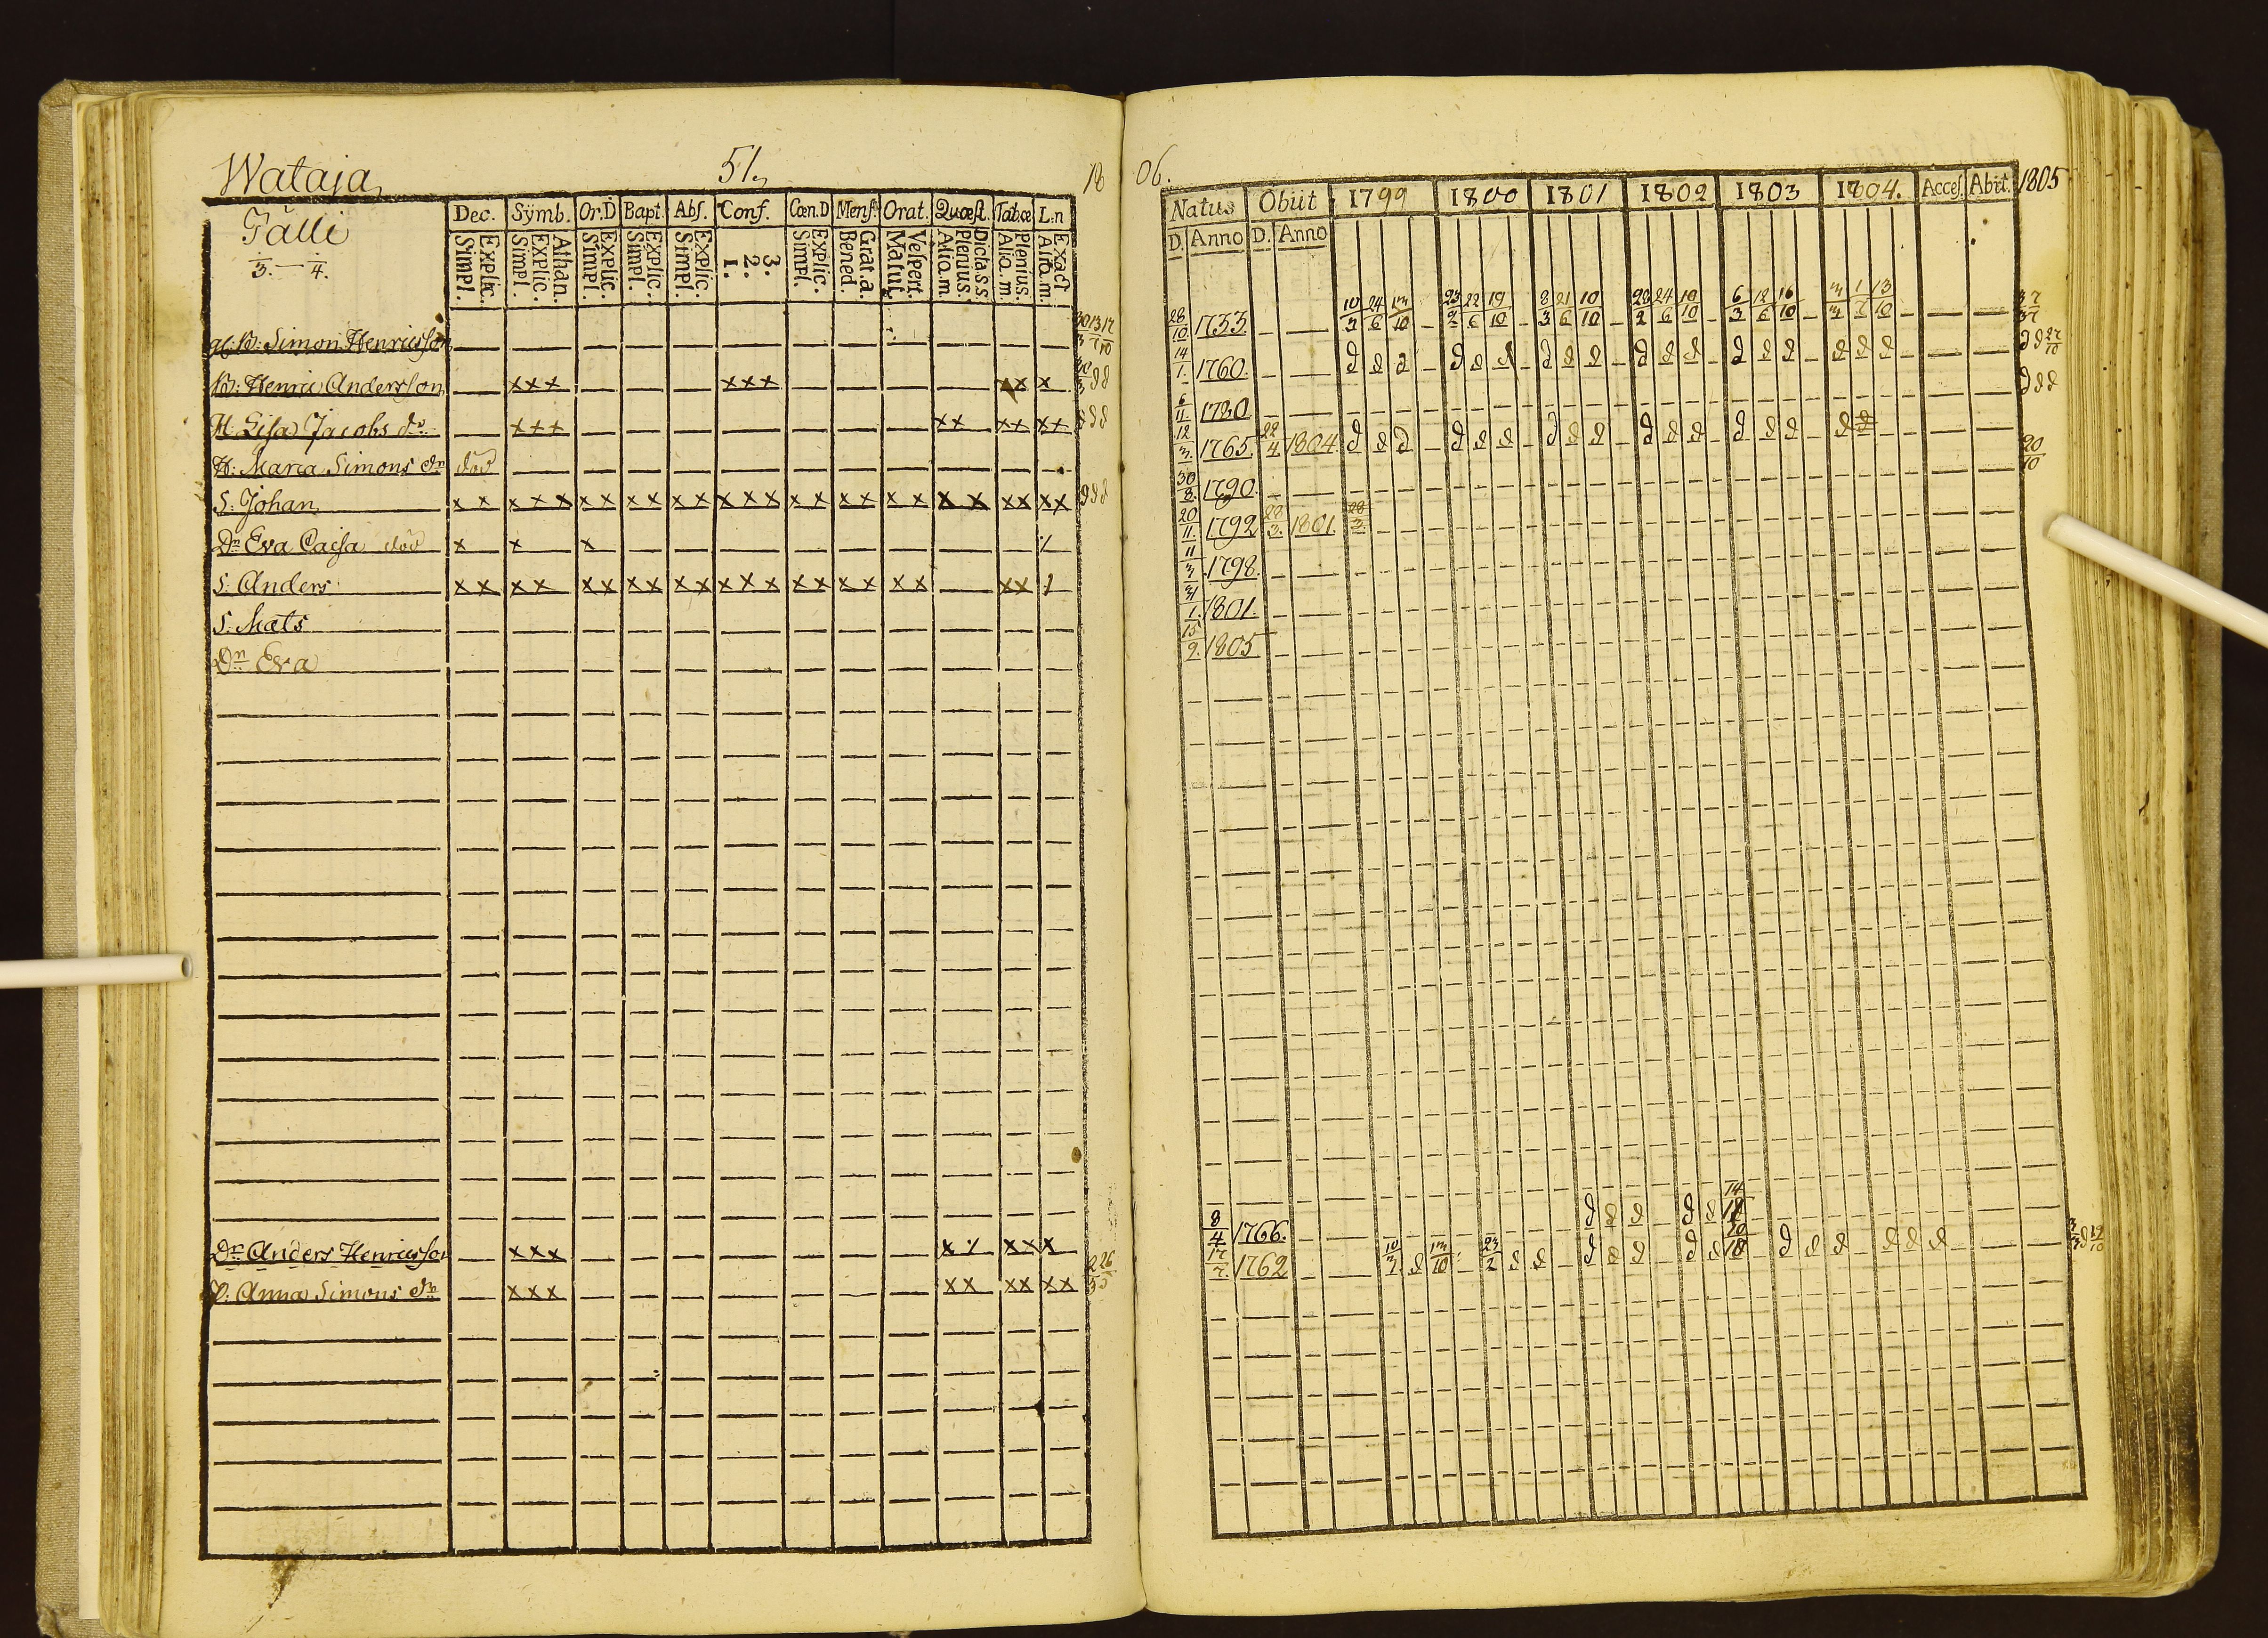 Wataja 51. 1806.
Tälli
3. — 4.
Dec. Sÿmb. Or.D Bapt. Abſ. Conf. Cœn.D Menſ. Orat. Quæſt. Tab.œ L.n
Simpl. Explic. Simpl. Explic. Athan. Simpl. Explic. Simpl. Explic. Simpl. Explic. 1. 2. 3. Simpl. Explic. Bened. Grat.a. Matut. Veſpert. Aliq.m. Plenius. Dicta s.s. Aliq.m. Plenius. Aliq.m. Exact
Simon Henricsson
B: Henric Andersson xxx xxx xx x
H: Lisa Jacobs dr xxx xx xx xx
H: Maria Simons dr död
S: Johan xx xxx xx xx xx xxx xx xx xx xx xx xx
Dr Eva Caisa död x x x
S: Anders xx xx xx xx xx xxx xx xx xx xx
S: Mats
Dr Eva
Dr Anders Henricsson xxx xxx
H: Anna Simons dr xxx xx xx xx
Natus Obiit 1799 1800 1801 1802 1803 1804. Acceſ. Abit. 1805
D. Anno D. Anno
28/10 1733. 10/3 24/6 13/10 23/2 22/6 19/10 8/3 21/6 10/10 28/2 24/6 10/10 6/3 12/6 16/10
14/1. 1760. d d d d d d d d d d d d d d d d d d
6/11 1780
12/3. 1765. 22/4 1804 d d d d d d d d d d d d d d d d d
30/8. 1790.
20/11. 1792 28/3. 1801.
11/3 1798.
31/1. 1801.
15/9. 1805
8/4 1766. d d d d d
17/7. 1762 10/3 d 13/10 23/2 d d d d d d d d d d d d d